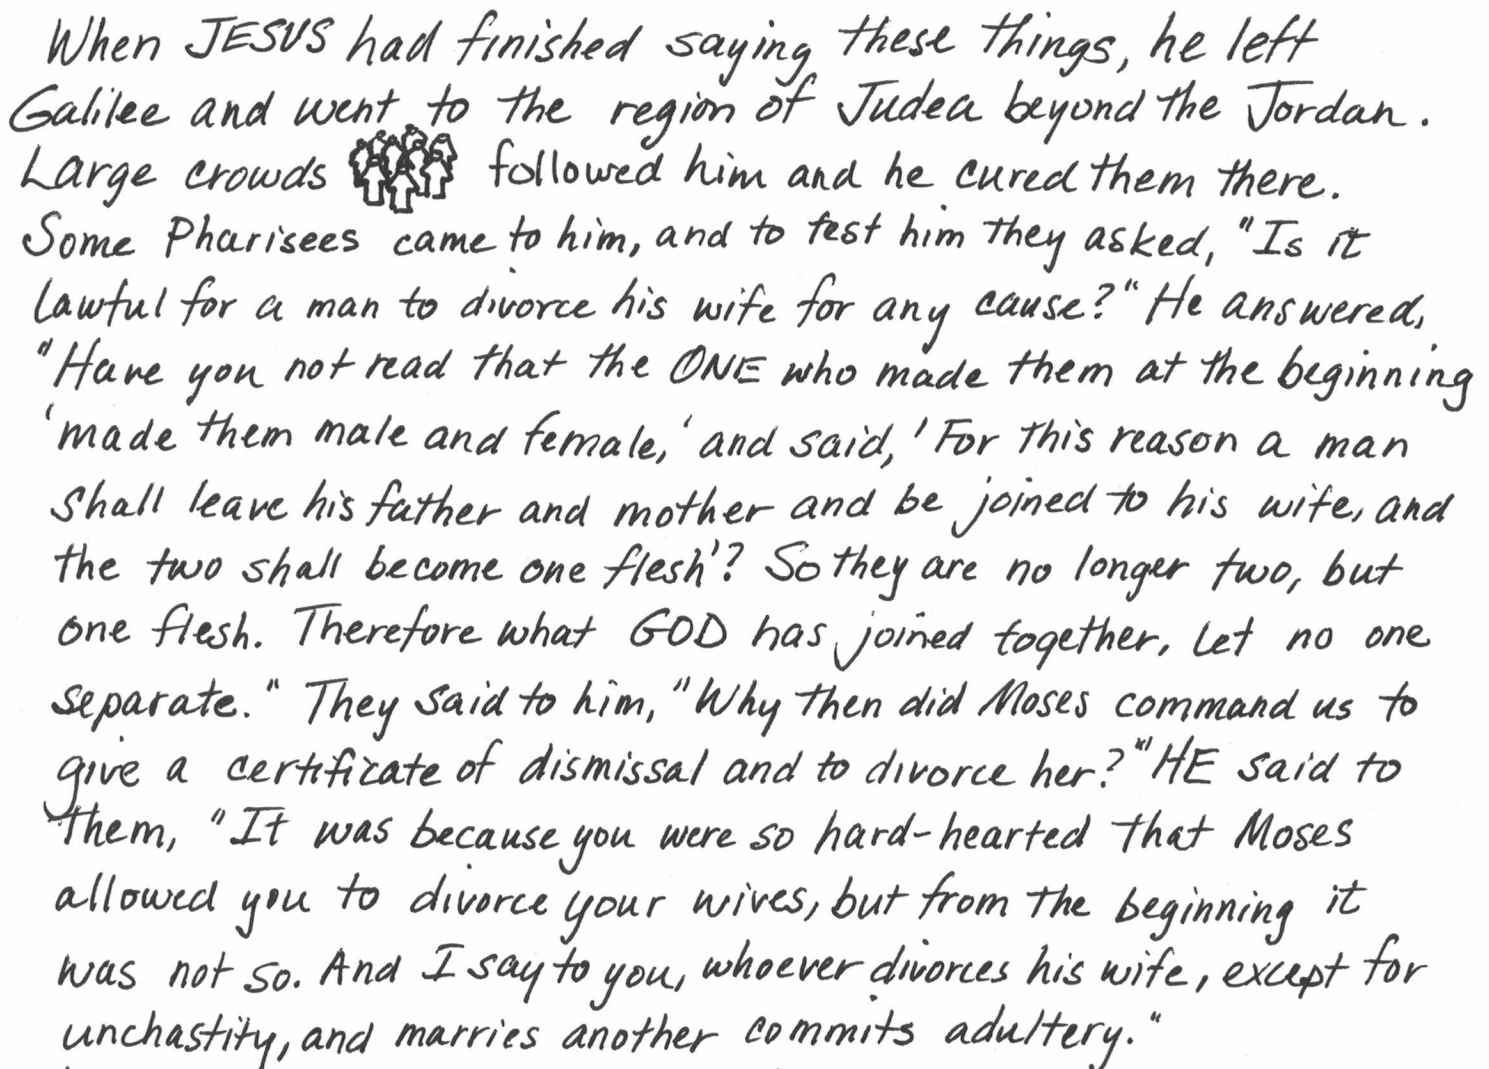 When JESUS had finished saying these things, he left
Galilee and went to the region of Judea beyond the Jordan.
Large crowds followed him and he cured them there.
Some Pharisees came to him, and to test him they asked, "Is it
lawful for a man to divorce his wife for any cause?" He answered,
"Have you not read that the ONE who made them at the beginning
'made them male and female,' and said, 'For this reason a man
shall leave his father and mother and be joined to his wife, and
the two shall become one flesh'? So they are no longer two, but
one flesh. Therefore what GOD has joined together, let no one
separate." They said to him, "Why then did Moses command us to
give a certificate of dismissal and to divorce her?" HE said to
them, "It was because you were so hard-hearted that Moses
allowed you to divorce your wives, but from the beginning it
was not so. And I say to you, whoever divorces his wife, except for
unchastity, and marries another commits adultery."